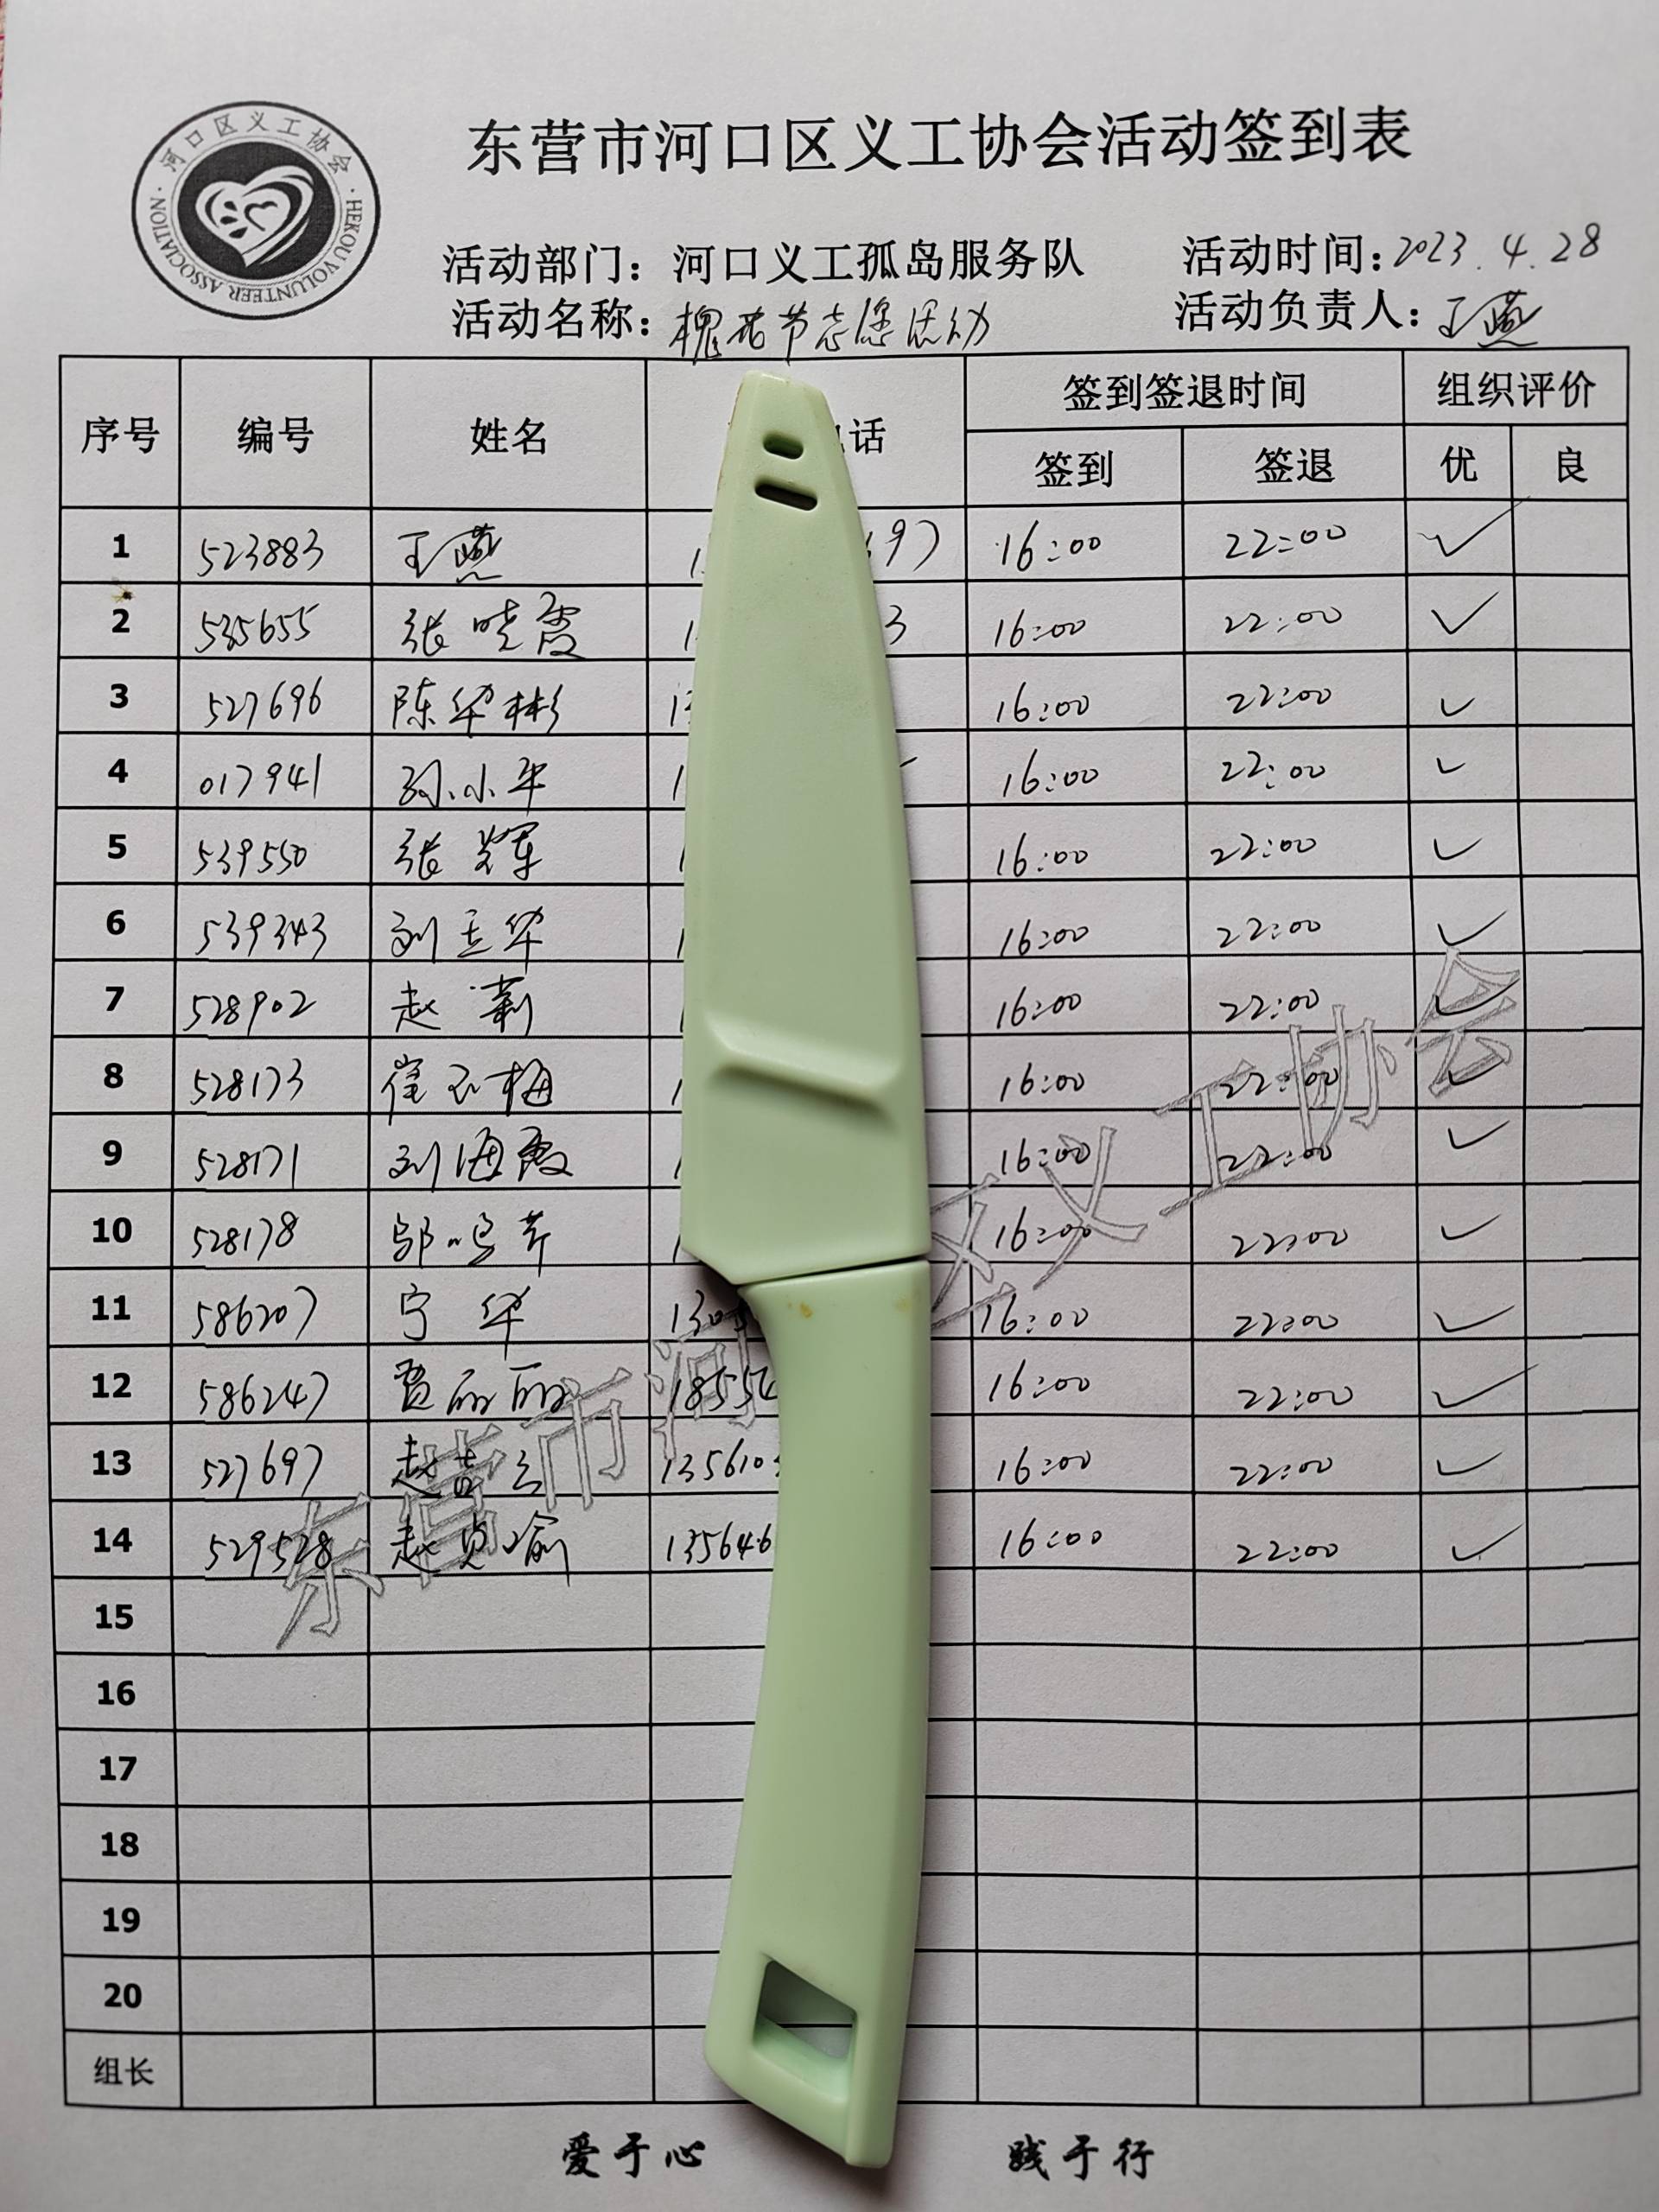 河口区义工协会
HEKOU VOLUNTEER ASSOCIATION
东营市河口区义工协会活动签到表
活动部门：河口义工孤岛服务队 活动时间：2023.4.28
活动名称：槐花节志愿活动 活动负责人：王燕
序号 编号 姓名 话 签到签退时间 组织评价
签到 签退 优 良
1 523883 王燕 97 16:00 22:00 ✓
2 535655 张晓霞 1 3 16:00 22:00 ✓
3 527696 陈华彬 16:00 22:00 ✓
4 017941 孙小平 1 16:00 22:00 ✓
5 539550 张辉 16:00 22:00 ✓
6 539343 刘玉华 16:00 22:00 ✓
7 528902 赵莉 16:00 22:00 ✓
8 528173 崔玉梅 16:00 22:00 ✓
9 528171 刘海霞 16:00 22:00 ✓
10 528178 邬鸣芹 16:00 22:00 ✓
11 586207 宁华 130 16:00 22:00 ✓
12 586247 贾丽丽 1855 16:00 22:00 ✓
13 527697 赵吉云 135610 16:00 22:00 ✓
14 529528 赵贝瑜 135646 16:00 22:00 ✓
15
16
17
18
19
20
组长
东营市河 区义工协会
爱于心 践于行